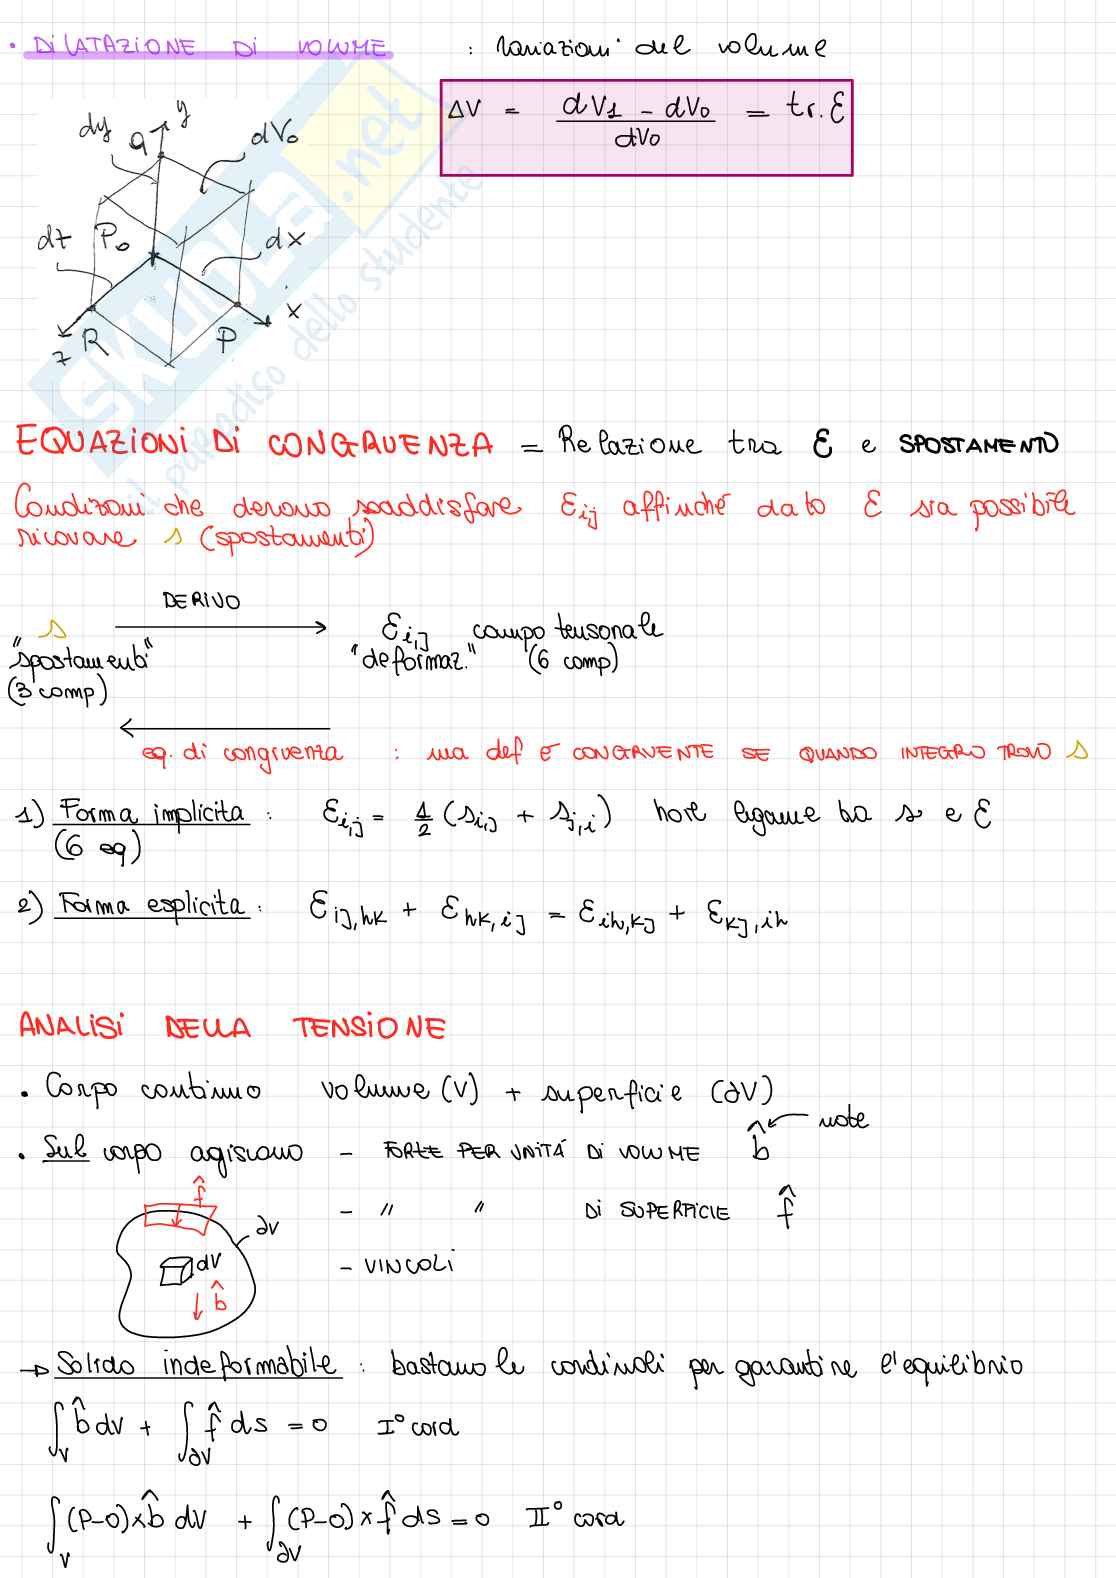 • DILATAZIONE DI VOLUME : Variazioni del volume
ΔV = dV1 - dV0 / dV0 = tr. ε
dy q y dV0
dz P0 dx
x
z R P
SKUOLA.net
il paradiso dello studente
EQUAZIONI DI CONGRUENZA = Relazione tra ε e SPOSTAMENTO
Condizioni che devono soddisfare εij affinché dato ε sia possibile
ricavare s (spostamenti)
DERIVO
s εi,j campo tensonale
"spostamenti" "deformaz." (6 comp)
(3 comp)
eq. di congruenza : una def è CONGRUENTE SE QUANDO INTEGRO TROVO s
1) Forma implicita : εi,j = 1/2 (si,j + sj,i) legame tra s e ε
(6 eq)
2) Forma esplicita : εij,hk + εhk,ij = εih,kj + εkj,ih
ANALISI DELLA TENSIONE
• Corpo continuo volume (V) + superficie (∂V)
• Sul corpo agiscono - FORZE PER UNITÁ DI VOLUME b̂ note
- " " DI SUPERFICIE f̂
- VINCOLI
f̂
∂V
dV
b̂
→ Solido indeformabile : bastano le per garantire l'equilibrio
∫V b̂ dV + ∫∂V f̂ ds = 0 I° card
∫V (P-O) x b̂ dV + ∫∂V (P-O) x f̂ ds = 0 II° card